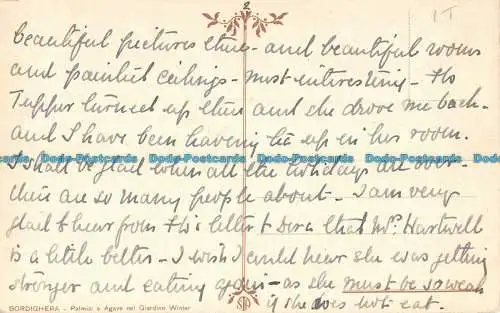 2
1T
beautiful pictures there - and beautiful rooms
and painted ceilings - most interesting -
Tupper turned up there and she drove me back -
and I have been having tea up in his room.
Dodo-Postcards Dodo-Postcards Dodo-Postcards Dodo-Postcards Dodo-Postcards
I shall be glad when all the holidays are over -
there are so many people about - I am very
glad to hear from this letter to Dora that Mrs. Hartwell
is a little better - I wish I could hear she was getting
stronger and eating again - as she must be so weak
if she does not eat.
BORDIGHERA - Palmizi e Agave nel Giardino Winter